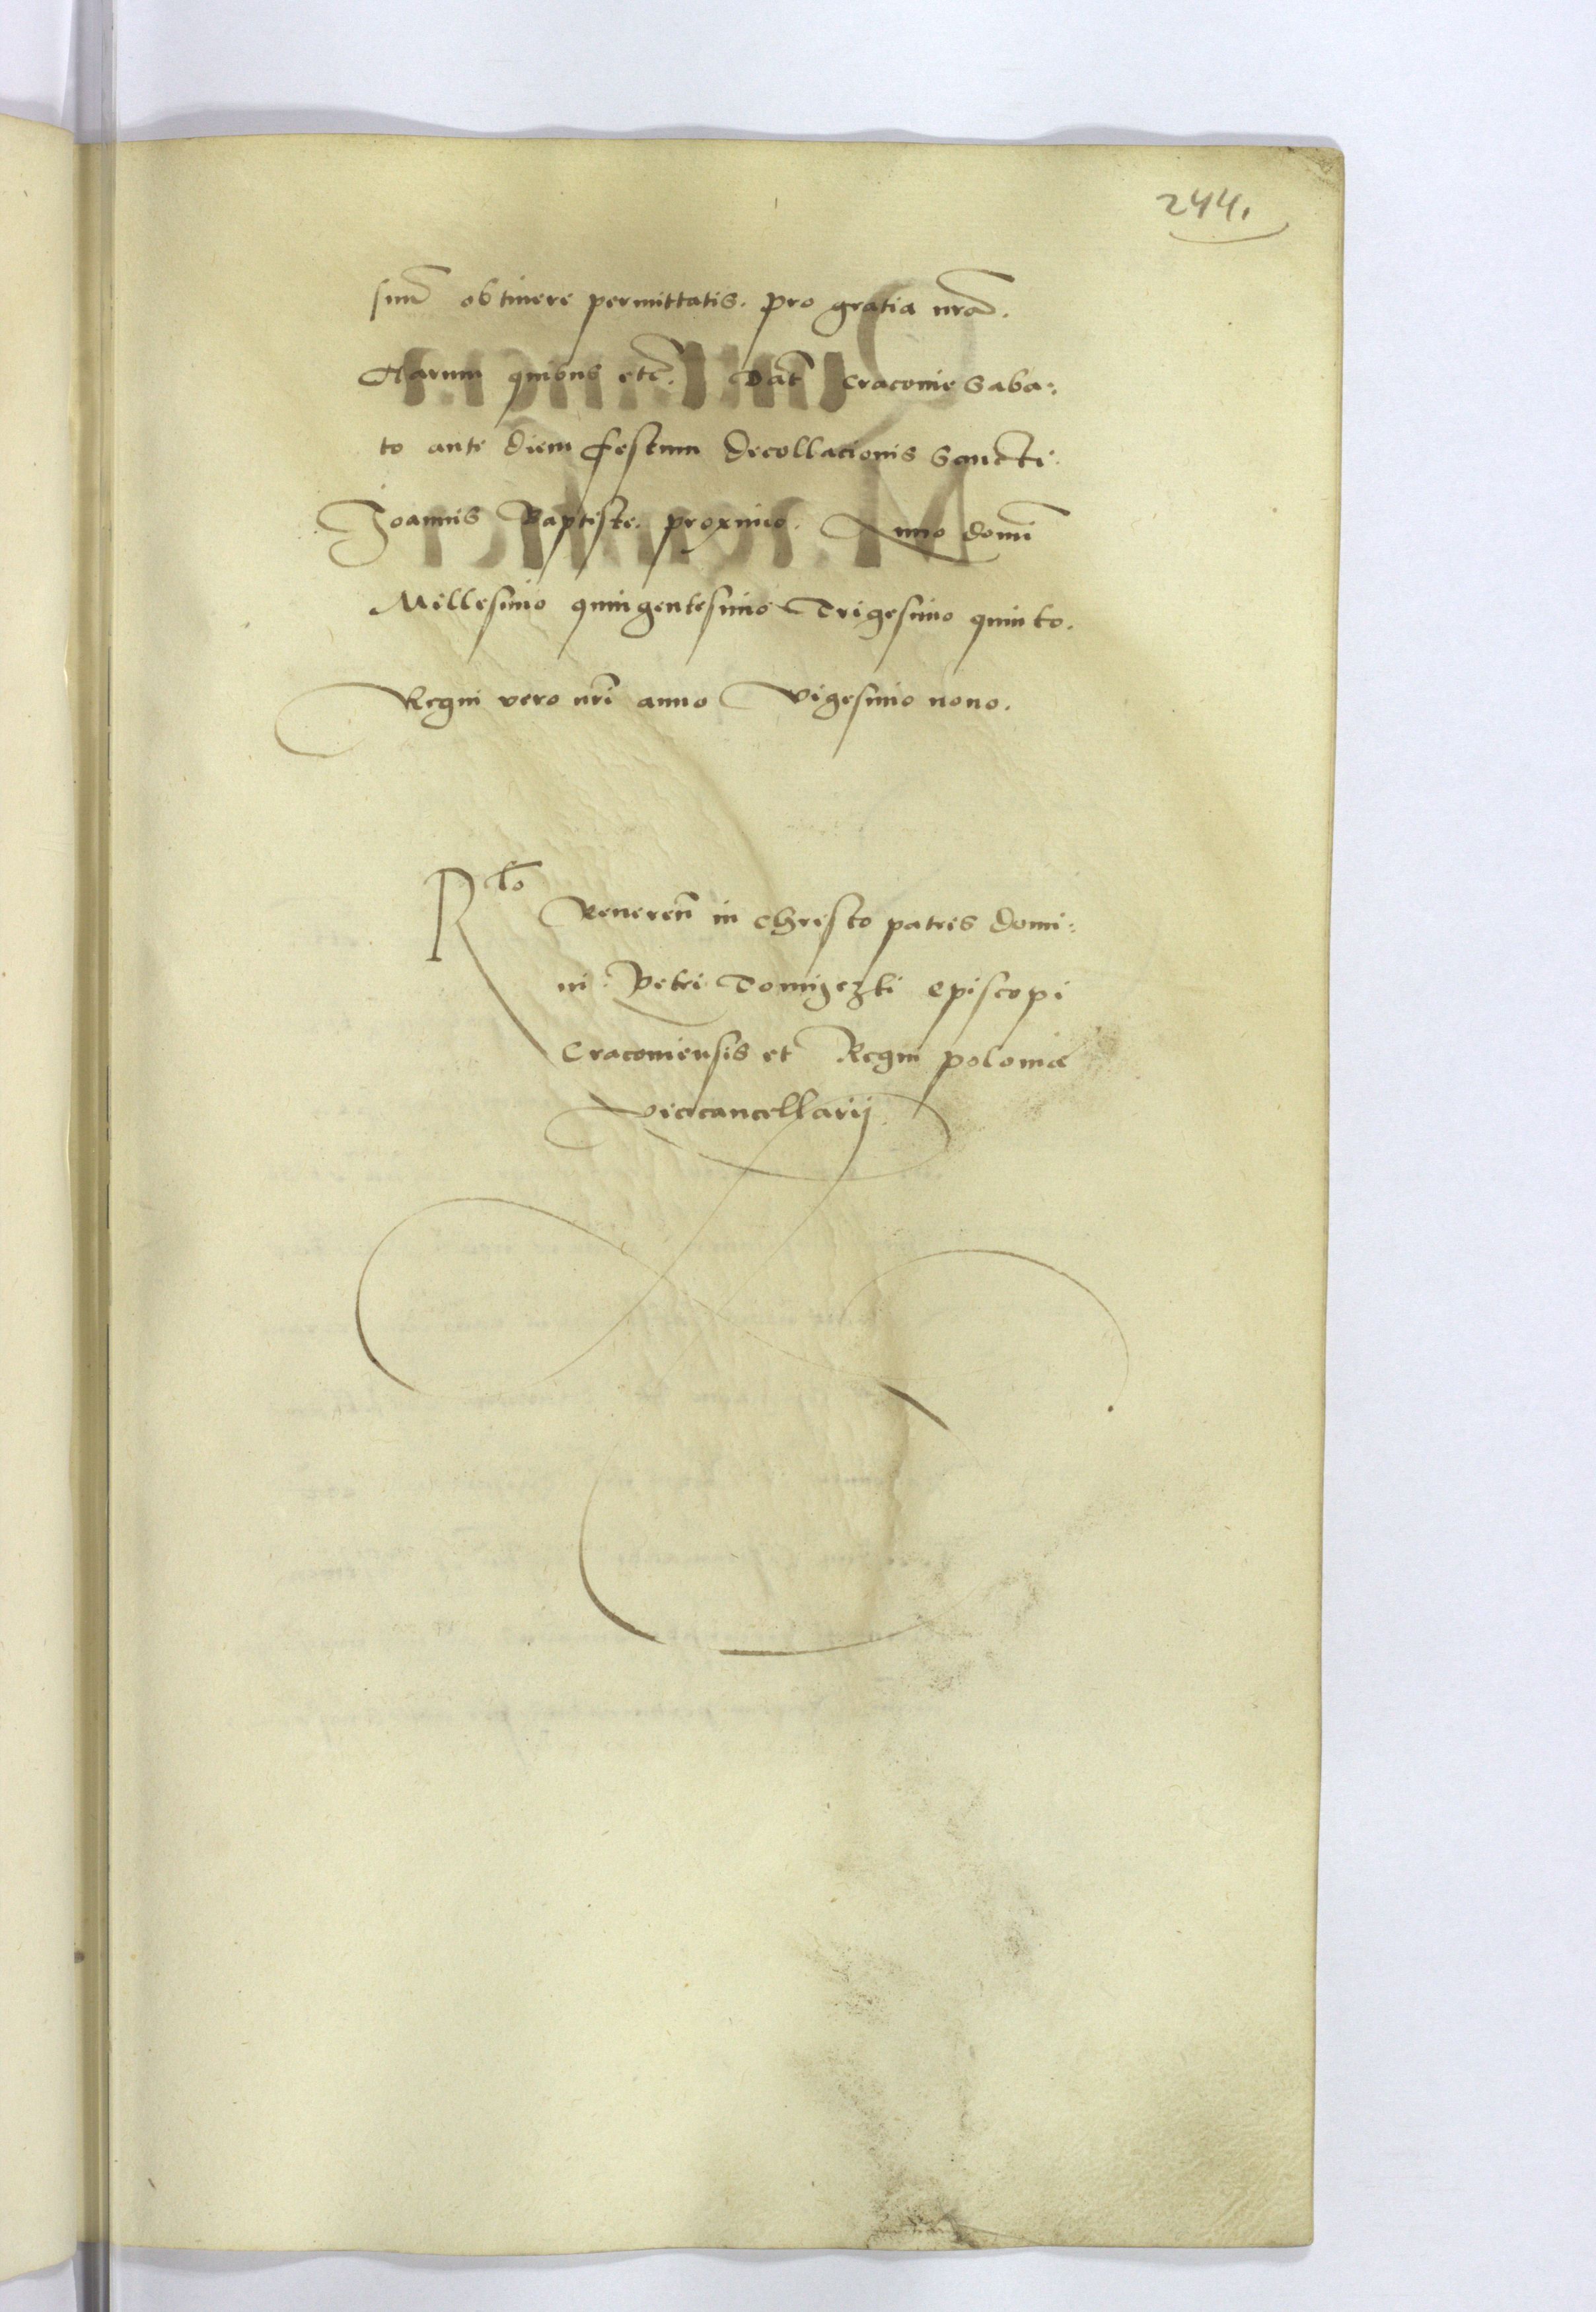 244.
suum obtinere permittatis. pro gratia nra.
Harum quibus etc. Dat Cracovie Saba:
to ante diem festum decollacionis Sancti
Joannis Baptiste proximo. Anno domi
Millesimo quingentesimo Trigesimo quinto.
Regni vero nri anno Vigesimo nono.
Rlo
Reveren in Christo patris domi:
ni Petri Tomiczki Episcopi
Cracoviensis et Regni polonie
Vicecancellarij